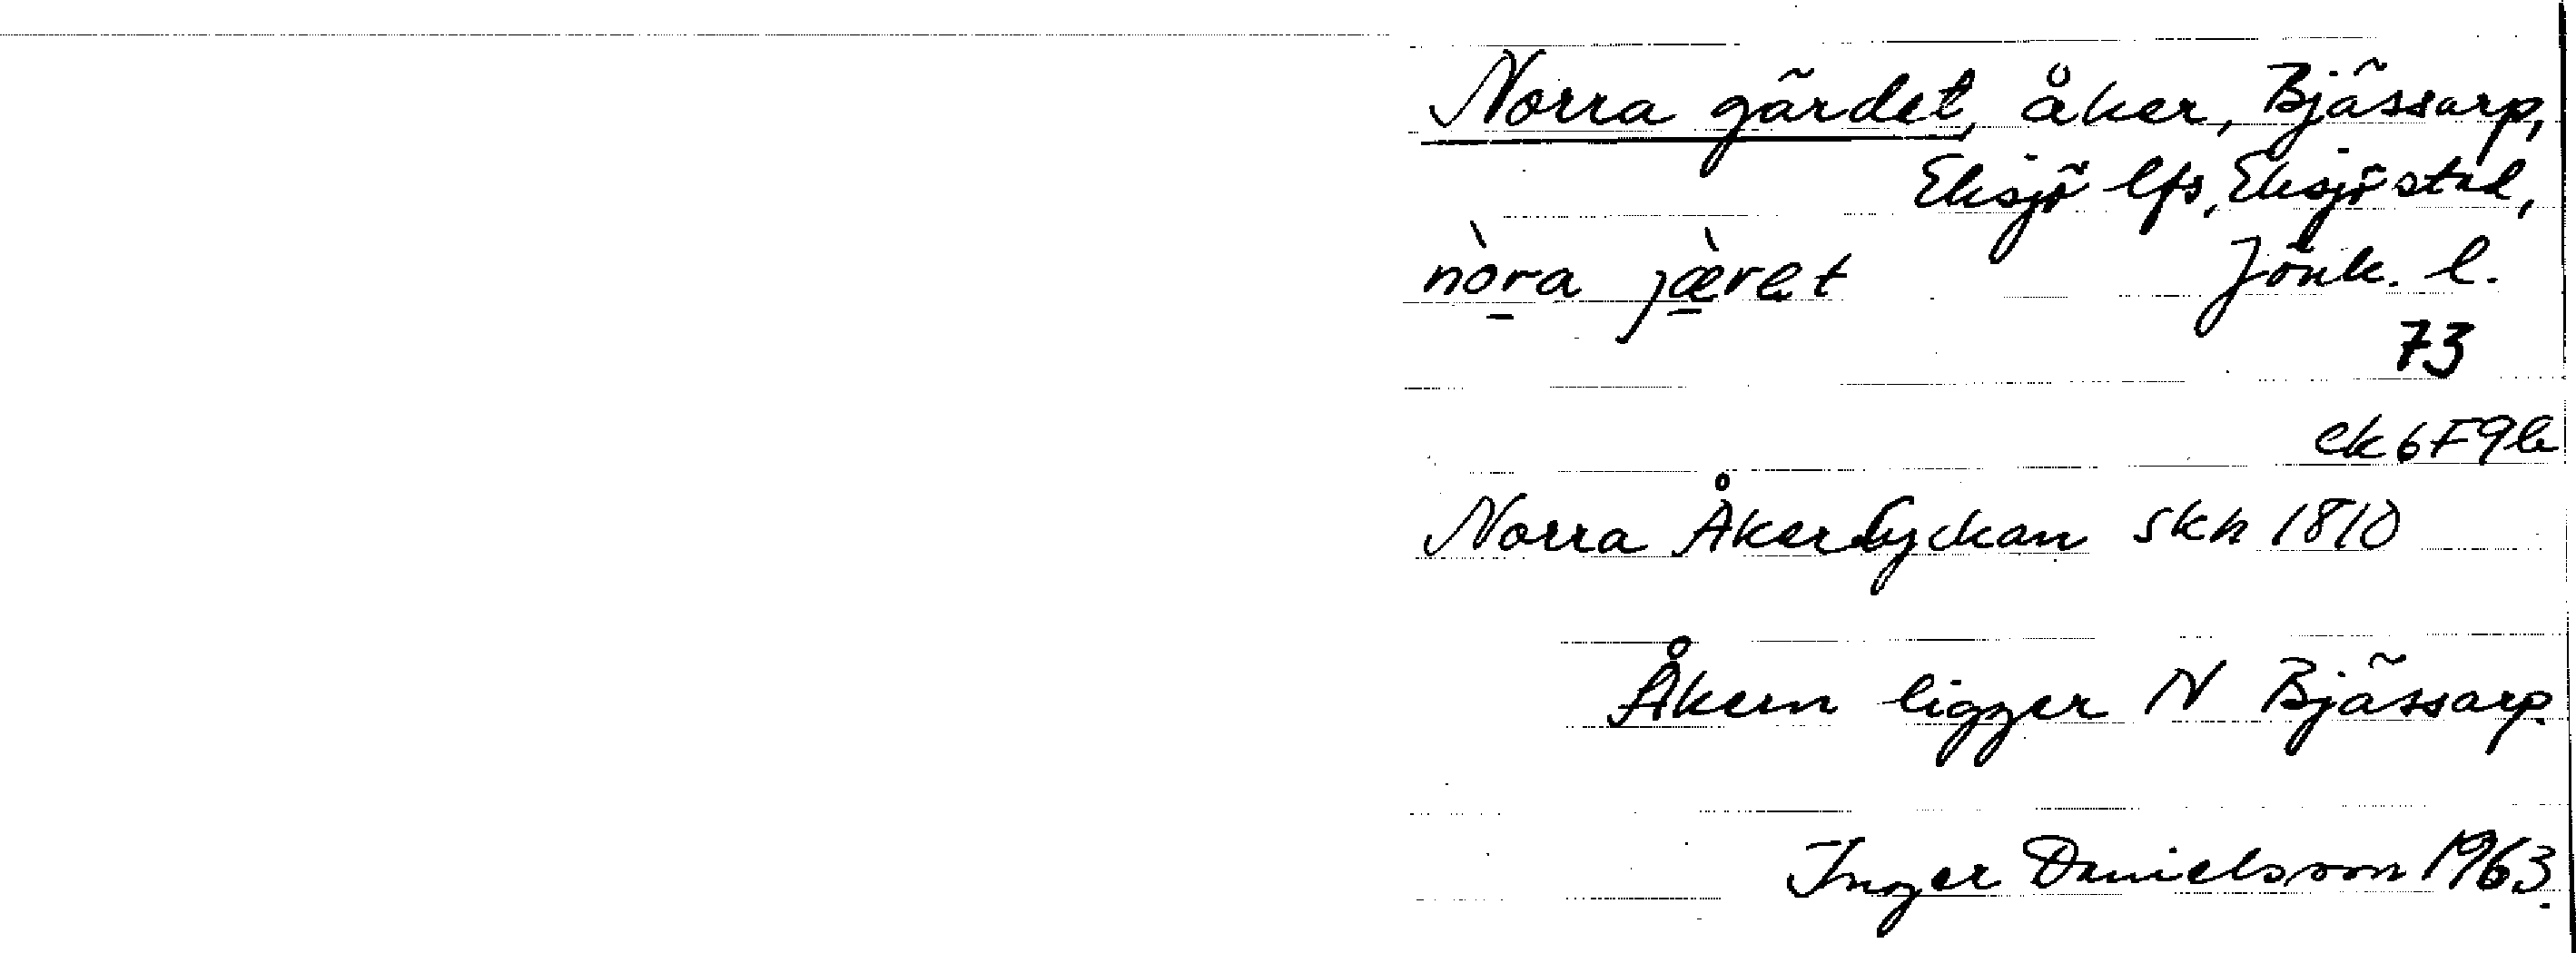 Norra gärdet, åker, Bjässarp,
Eksjö lfs, Eksjö stad,
nòra jæ̀ret Jönk. l.
73
ek 6F9b
Norra Åkerlyckan skh 1810
Åkern ligger N Bjässarp.
Inger Danielsson 1963.